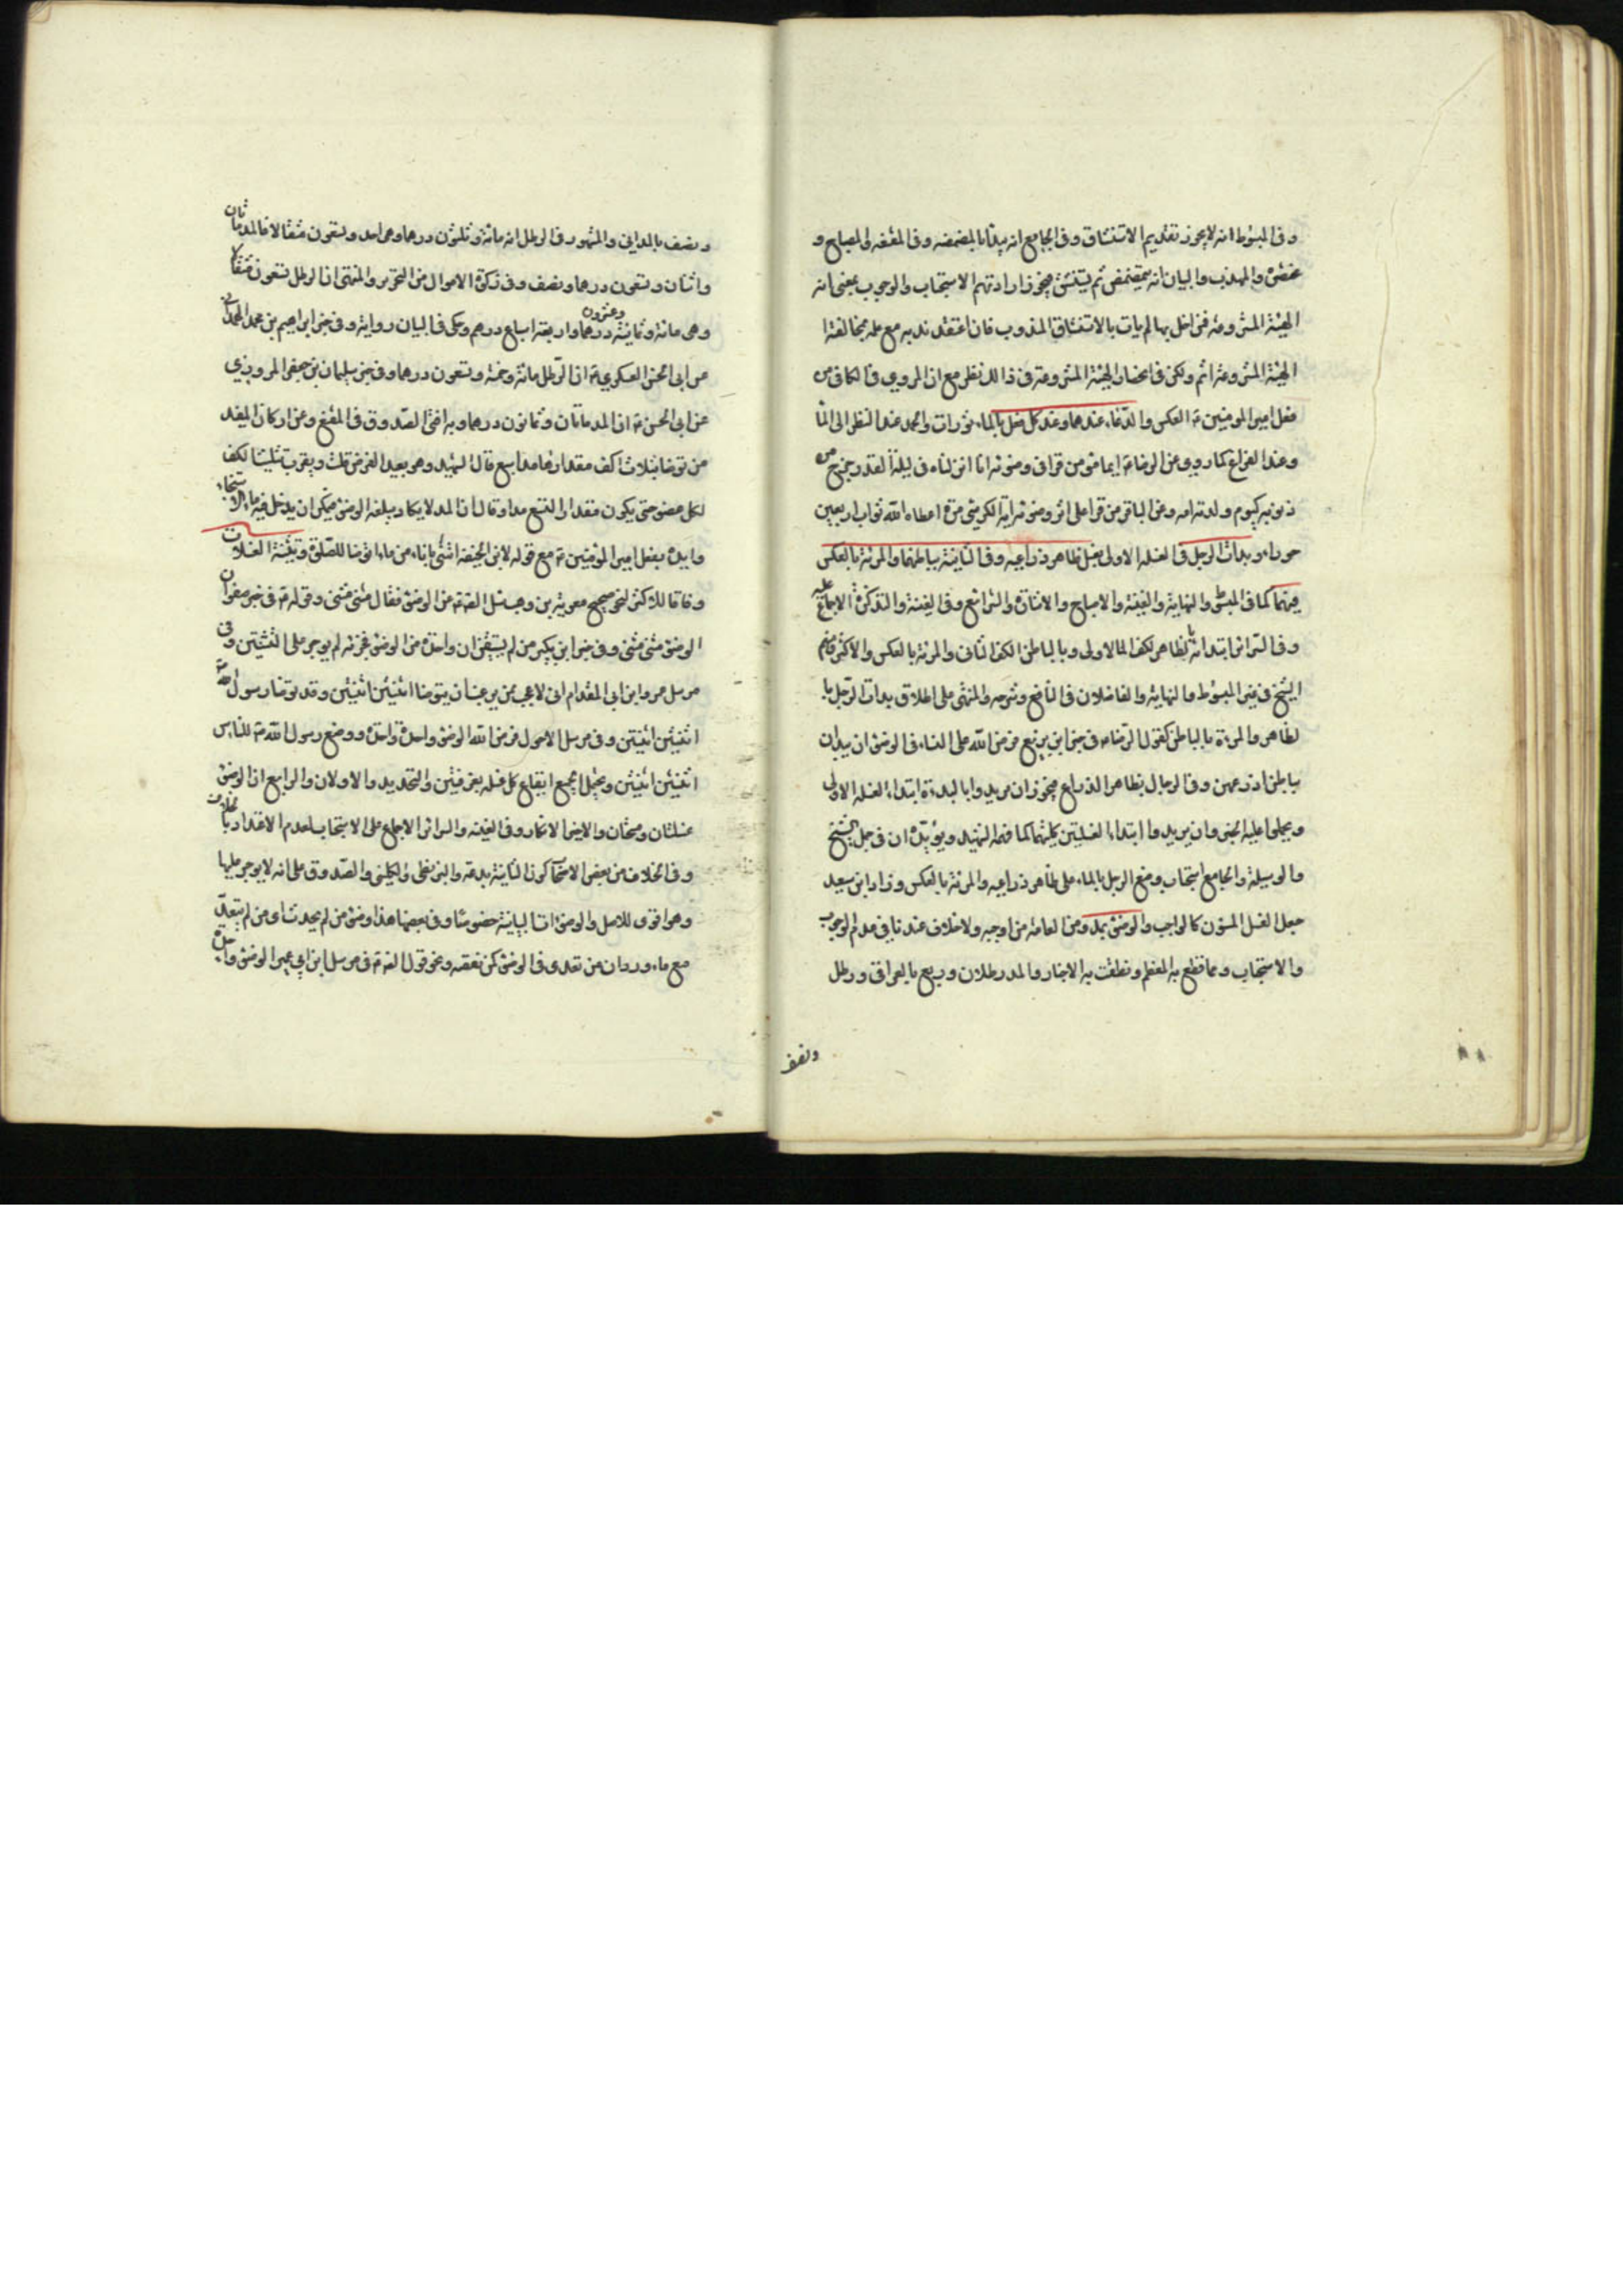 وفي المبسوط انه لا يجوز تقديم الاستنشاق وفي الجامع انه يبدأ بالمضمضة وفي المقنعه والمصباح و
مختصره والمهذب والبيان انه يتمضمض ثم يستنشق فيجوز ارادتهم الاستحباب والوجوب بمعنى انه
الهيئة المشروعة فمن اخل بها لم يات بالاستنشاق المندوب فان اعتقد ندبه مع علمه بمخالفة
الهيئة المشروعة اثم ولكن في انحصار الهيئة المشروعة في ذالك نظر مع ان المروي في الكافي من
فعل امير المؤمنين ع العكس والدعاء عندهما وعند كل فعل بالماثورات والحمد عند النظر الى الماء
وعند الفراغ كما روي وعن الرضا ع ايما مؤمن قرا في وضوئه انا انزلناه في ليلة القدر خرج من
ذنوبه كيوم ولدته امه وعن الباقر من قرا على اثر وضوئه اية الكرسي مرة اعطاه الله ثواب اربعين
وبدأة الرجل في الغسلة الاولى بغسل ظاهر ذراعيه وفي الثانية بباطنهما والمرئة بالعكس
فيهما كما في المبسوط والنهاية والغنية والاصباح والاشارة والشرائع وفي الغنية والتذكرة الاجماع عليه
وفي السرائر ابتدائه بظاهر الكف الاولى وبالباطن الكف الثاني والمرئة بالعكس والاكثر ومنهم
الشيخ في غير المبسوط والنهاية والفاضلان في النافع وشرحه والمنتهى على اطلاق بدأة الرجل با
لظاهر والمرءة بالباطن كقول الرضا ع في خبر ابن بزيع فرض الله على النساء في الوضوء ان يبدان
بباطن اذرعهن وفي الرجال بظاهر الذراع فيجوز ان يريدوا بالبدءة ابتداء الغسلة الاولى
ويحملوا عليه الخبر وان يريدوا ابتداء الغسلتين كلتيهما كما فهمه الشهيد ويؤيده ان في جمل الشيخ
والوسيلة والجامع استحباب وضع الرجل الماء على ظاهر ذراعيه والمرئة بالعكس وزاد ابن سعيد
جعل الغسل المسنون كالواجب والوضوء بمد ومن العامة من اوجبه ولا خلاف عندنا في عدم الوجوب
والاستحباب ومما قطع به المعظم ونطقت به الاخبار والمد رطلان وربع بالعراقي ورطل
ونصف
ونصف بالمدني والمشهور في الرطل انه مائة وثلثون درهما وهي احد وتسعون مثقالا فالمد مائتان
واثنان وتسعون درهما ونصف وفي زكوة الاموال من التحرير والمنتهى ان الرطل تسعون مثقالا
وهي مائة وثمانية وعشرون درهما واربعة اسباع درهم وحكى في البيان رواية وفي خبر ابراهيم بن محمد الهمداني
عن ابي الحسن العسكري ع ان الرطل مائة وخمسة وتسعون درهما وفي خبر سليمان بن جعفر المروزي
عن ابي الحسن ع ان المد مائتان وثمانون درهما وبه افتى الصدوق في المقنع وعن اركان المفيد
من توضا بثلاث اكف مقدارها مد اسبغ قال الشهيد وهو بعيد الفرض قلت ويقرب تثليث الكف
لكل عضو حتى يكون مقدار التسع مدا وقال ان المد لا يكاد يبلغه الوضوء فيمكن ان يدخل فيه ماء الاستنجاء
وايده بفعل امير المؤمنين ع مع قوله لابن الحنفية ائتني باناء من ماء اتوضا للصلوة وتثنية الغسلات
وفاقا للاكثر لنحو صحيح معوية بن وهب سئل الص ع عن الوضوء فقال مثنى مثنى وقوله ع في خبر صفوان
الوضوء مثنى مثنى وفي خبر ابن بكير من لم يستيقن ان واحدة من الوضوء تجزئه لم يوجر على الثنتين وفي
مرسل عمرو ابن ابي المقدام اني لاعجب ممن يرغب ان يتوضا اثنتين اثنتين وقد توضا رسول الله
اثنتين اثنتين وفي مرسل الاحول فرض الله الوضوء واحدة واحدة ووضع رسول الله ص للناس
اثنتين اثنتين ويحتمل الجميع ايقاع كل غسلة بغرفتين والتحديد والاولان والرابع ان الوضوء
غسلتان ومسحتان والاخير الانكار وفي الغنية والسرائر الاجماع على الاستحباب لعدم الاعتداد بالخلاف
وفي الخلاف عن بعض الاصحاب كون الثانية بدعة والبزنطي والكليني والصدوق على انه لا يوجر عليها
وهو اقوى للاصل والوضوءات البيانية خصوصا وفي بعضها هذا وضوء من لم يحدث اي من لم يتعد
مع ما ورد ان من تعدى في الوضوء كمن نقصه ونحو قول الص ع في مرسل ابن ابي عمير الوضوء واحدة